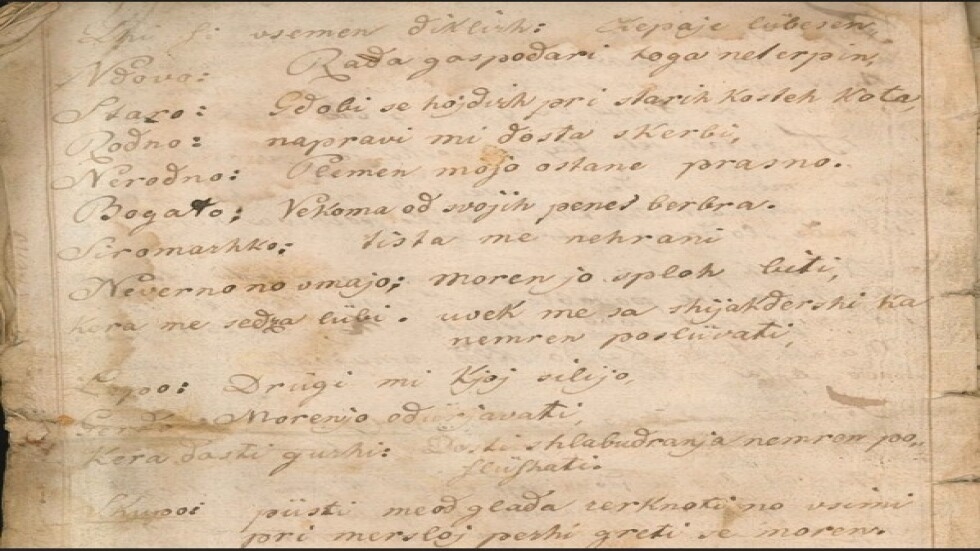 vsemen diklizh: zepaje lübesen,
Vdovo: Rada gospodari toga neterpin,
Staro: Gdobi se hojdizh pri starih kosteh kota,
Rodno: napravi mi dosta skerbi,
Nerodno: Plemen mojo ostane prasno.
Bogato; Vekoma od svojih penes berbra.
Siromazhko: tista me nehrani
Neverno no vmajo; moren jo sploh biti,
kera me sedza lübi. uvek me sa shijakdershi ka
nemren poslüvati,
Lepo: Drügi mi kjoj silijo,
Morenjo odürjavati,
Kera dosti guzhi: Dosti shlabudranja nemren po„
slüshati.
Skupo: püsti meod glada zerknoti no vsimi
pri mersloj pezhi greti se moren.